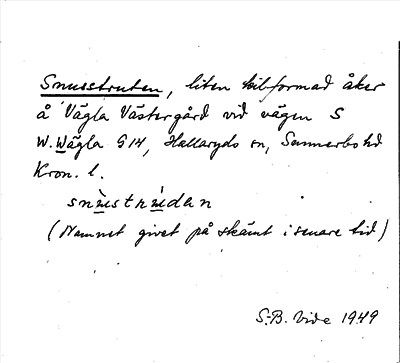 Snusstruten, liten kilformad åker
å Vägla Västergård vid vägen S
W. Wägla G14, Hallaryds sn, Sunnerbo hd
Kron. l.
snùstrúdan
(Namnet givet på skämt i senare tid)
S.-B. Vide 1949